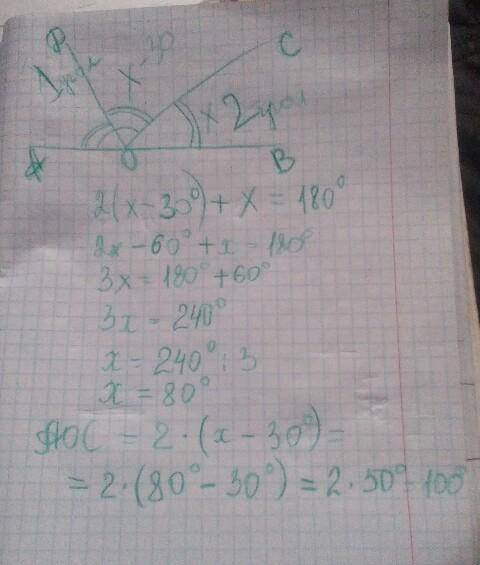 D
C
1 угол
x-30
x 2 угол
A
O
B
2(x-30°)+x=180°
2x-60°+x=180°
3x=180°+60°
3x=240°
x=240°:3
x=80°
AOC=2·(x-30°)=
=2·(80°-30°)=2·50°=100°